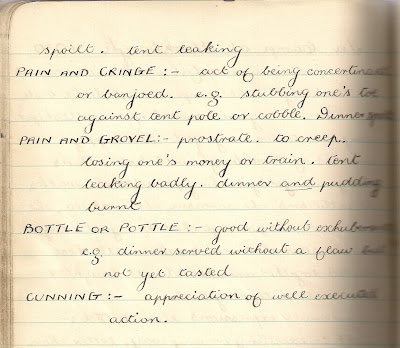 spoilt. tent leaking
PAIN AND CRINGE :- act of being concertinaed
or banjoed. e.g. stubbing one's toe
against tent pole or cobble. Dinner
PAIN AND GROVEL:- prostrate. to creep.
losing one's money or train. tent
leaking badly. dinner and pudding
burnt
BOTTLE OR POTTLE :- good without
e.g dinner served without a flaw but
not yet tasted
CUNNING :- appreciation of well executed
action.